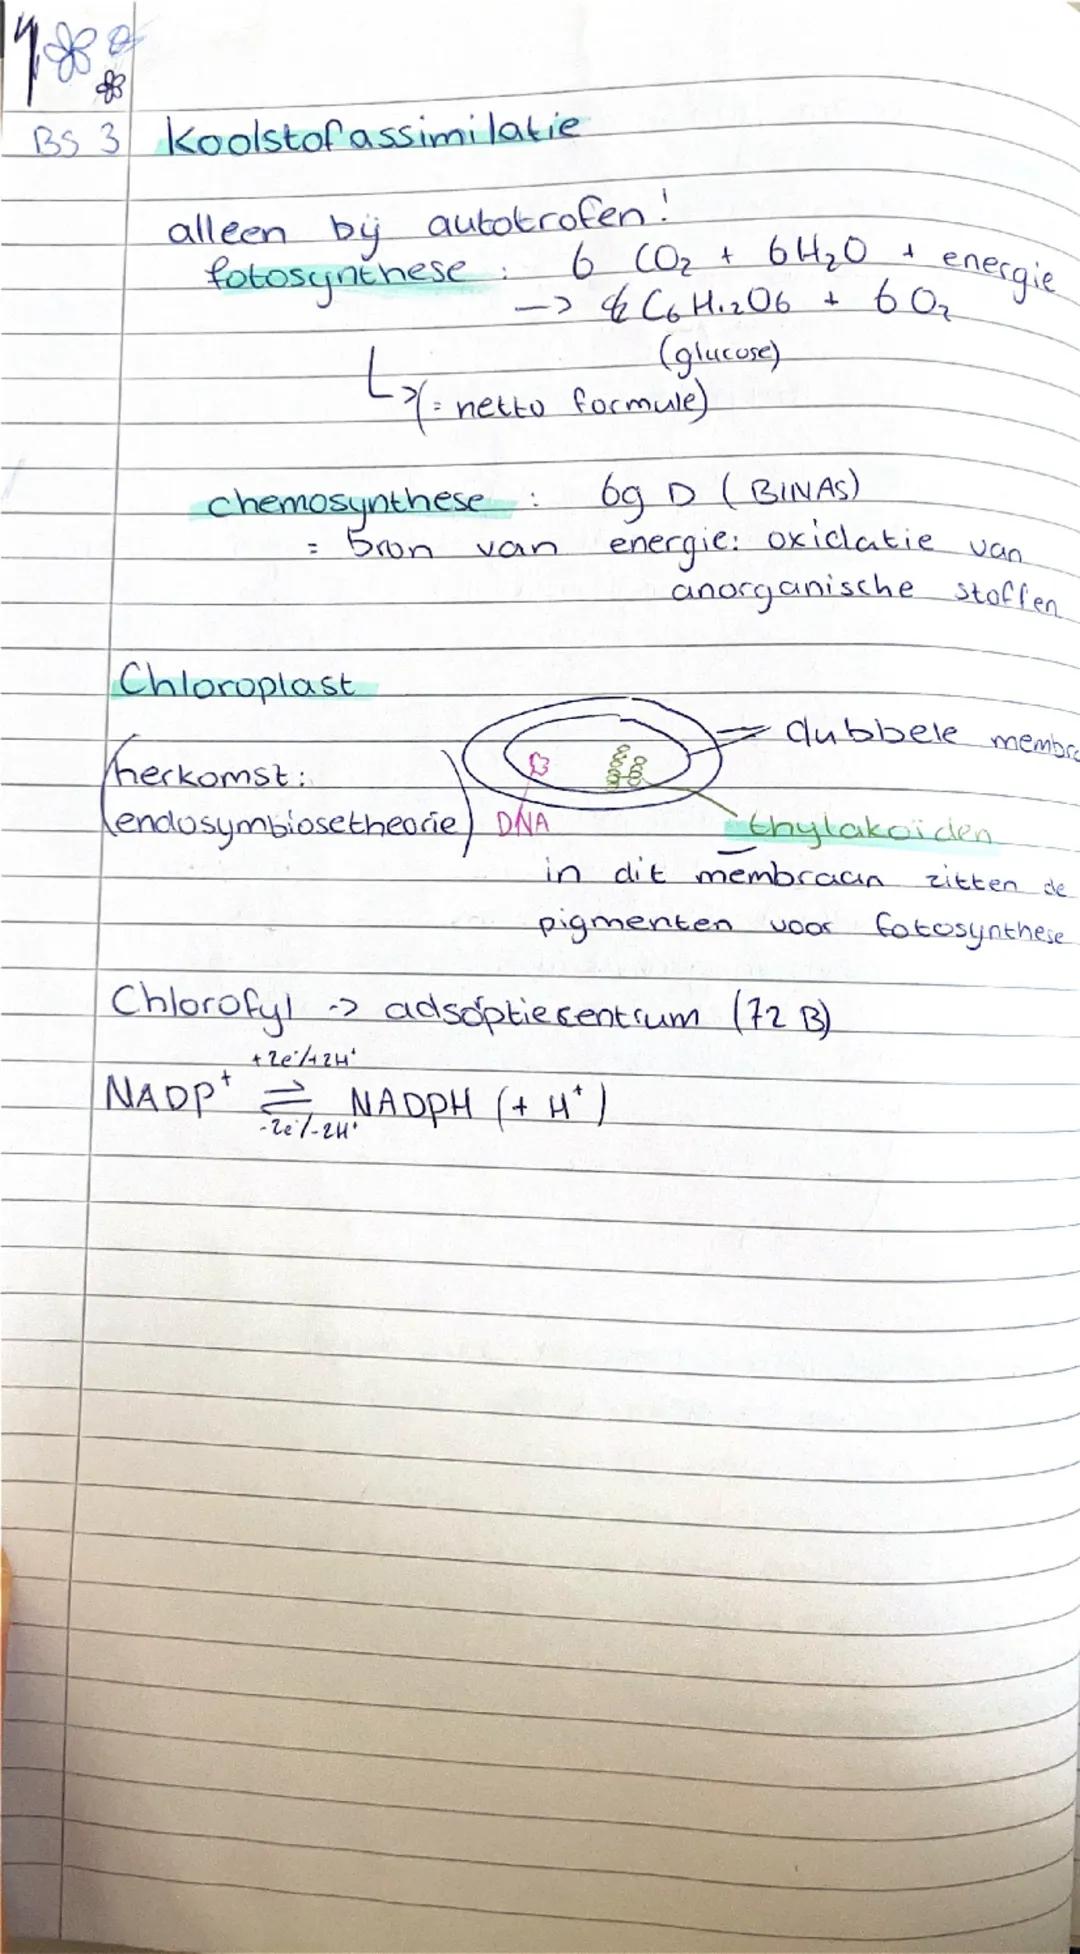 BS 3 Koolstofassimilatie
alleen bij autotrofen!
fotosynthese : 6 CO₂ + 6H₂O + energie
-> C6H12O6 + 6O₂
(glucose)
(= netto formule)
chemosynthese : 69 D (BINAS)
= bron van energie: oxidatie van
anorganische stoffen
Chloroplast
dubbele membra
(herkomst:
endosymbiosetheorie) DNA
thylakoïden
in dit membraan zitten de
pigmenten voor fotosynthese
Chlorofyl -> adsoptiecentrum (72 B)
+2e⁻/+2H⁺
NADP⁺ ⇌ NADPH (+ H⁺)
-2e⁻/-2H⁺